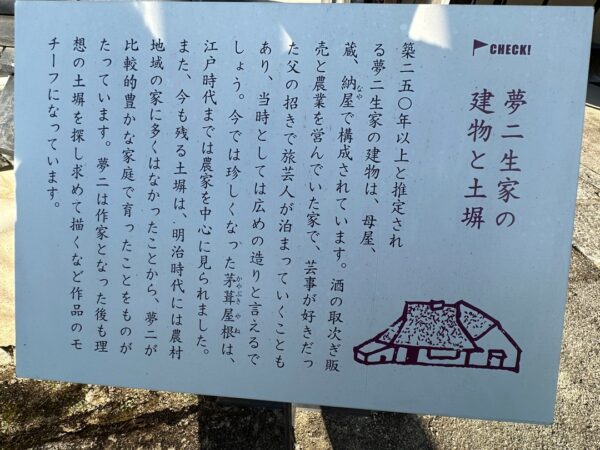 CHECK!
夢二生家の
建物と土塀
築二五〇年以上と推定され
る夢二生家の建物は、母屋、
蔵、納屋で構成されています。酒の取次ぎ販
なや
売と農業を営んでいた家で、芸事が好きだっ
た父の招きで旅芸人が泊まっていくことも
あり、当時としては広めの造りと言えるで
しょう。今では珍しくなった茅葺屋根は、
かやぶきやね
江戸時代までは農家を中心に見られました。
また、今も残る土塀は、明治時代には農村
地域の家に多くはなかったことから、夢二が
比較的豊かな家庭で育ったことをものが
たっています。夢二は作家となった後も理
想の土塀を探し求めて描くなど作品のモ
チーフになっています。